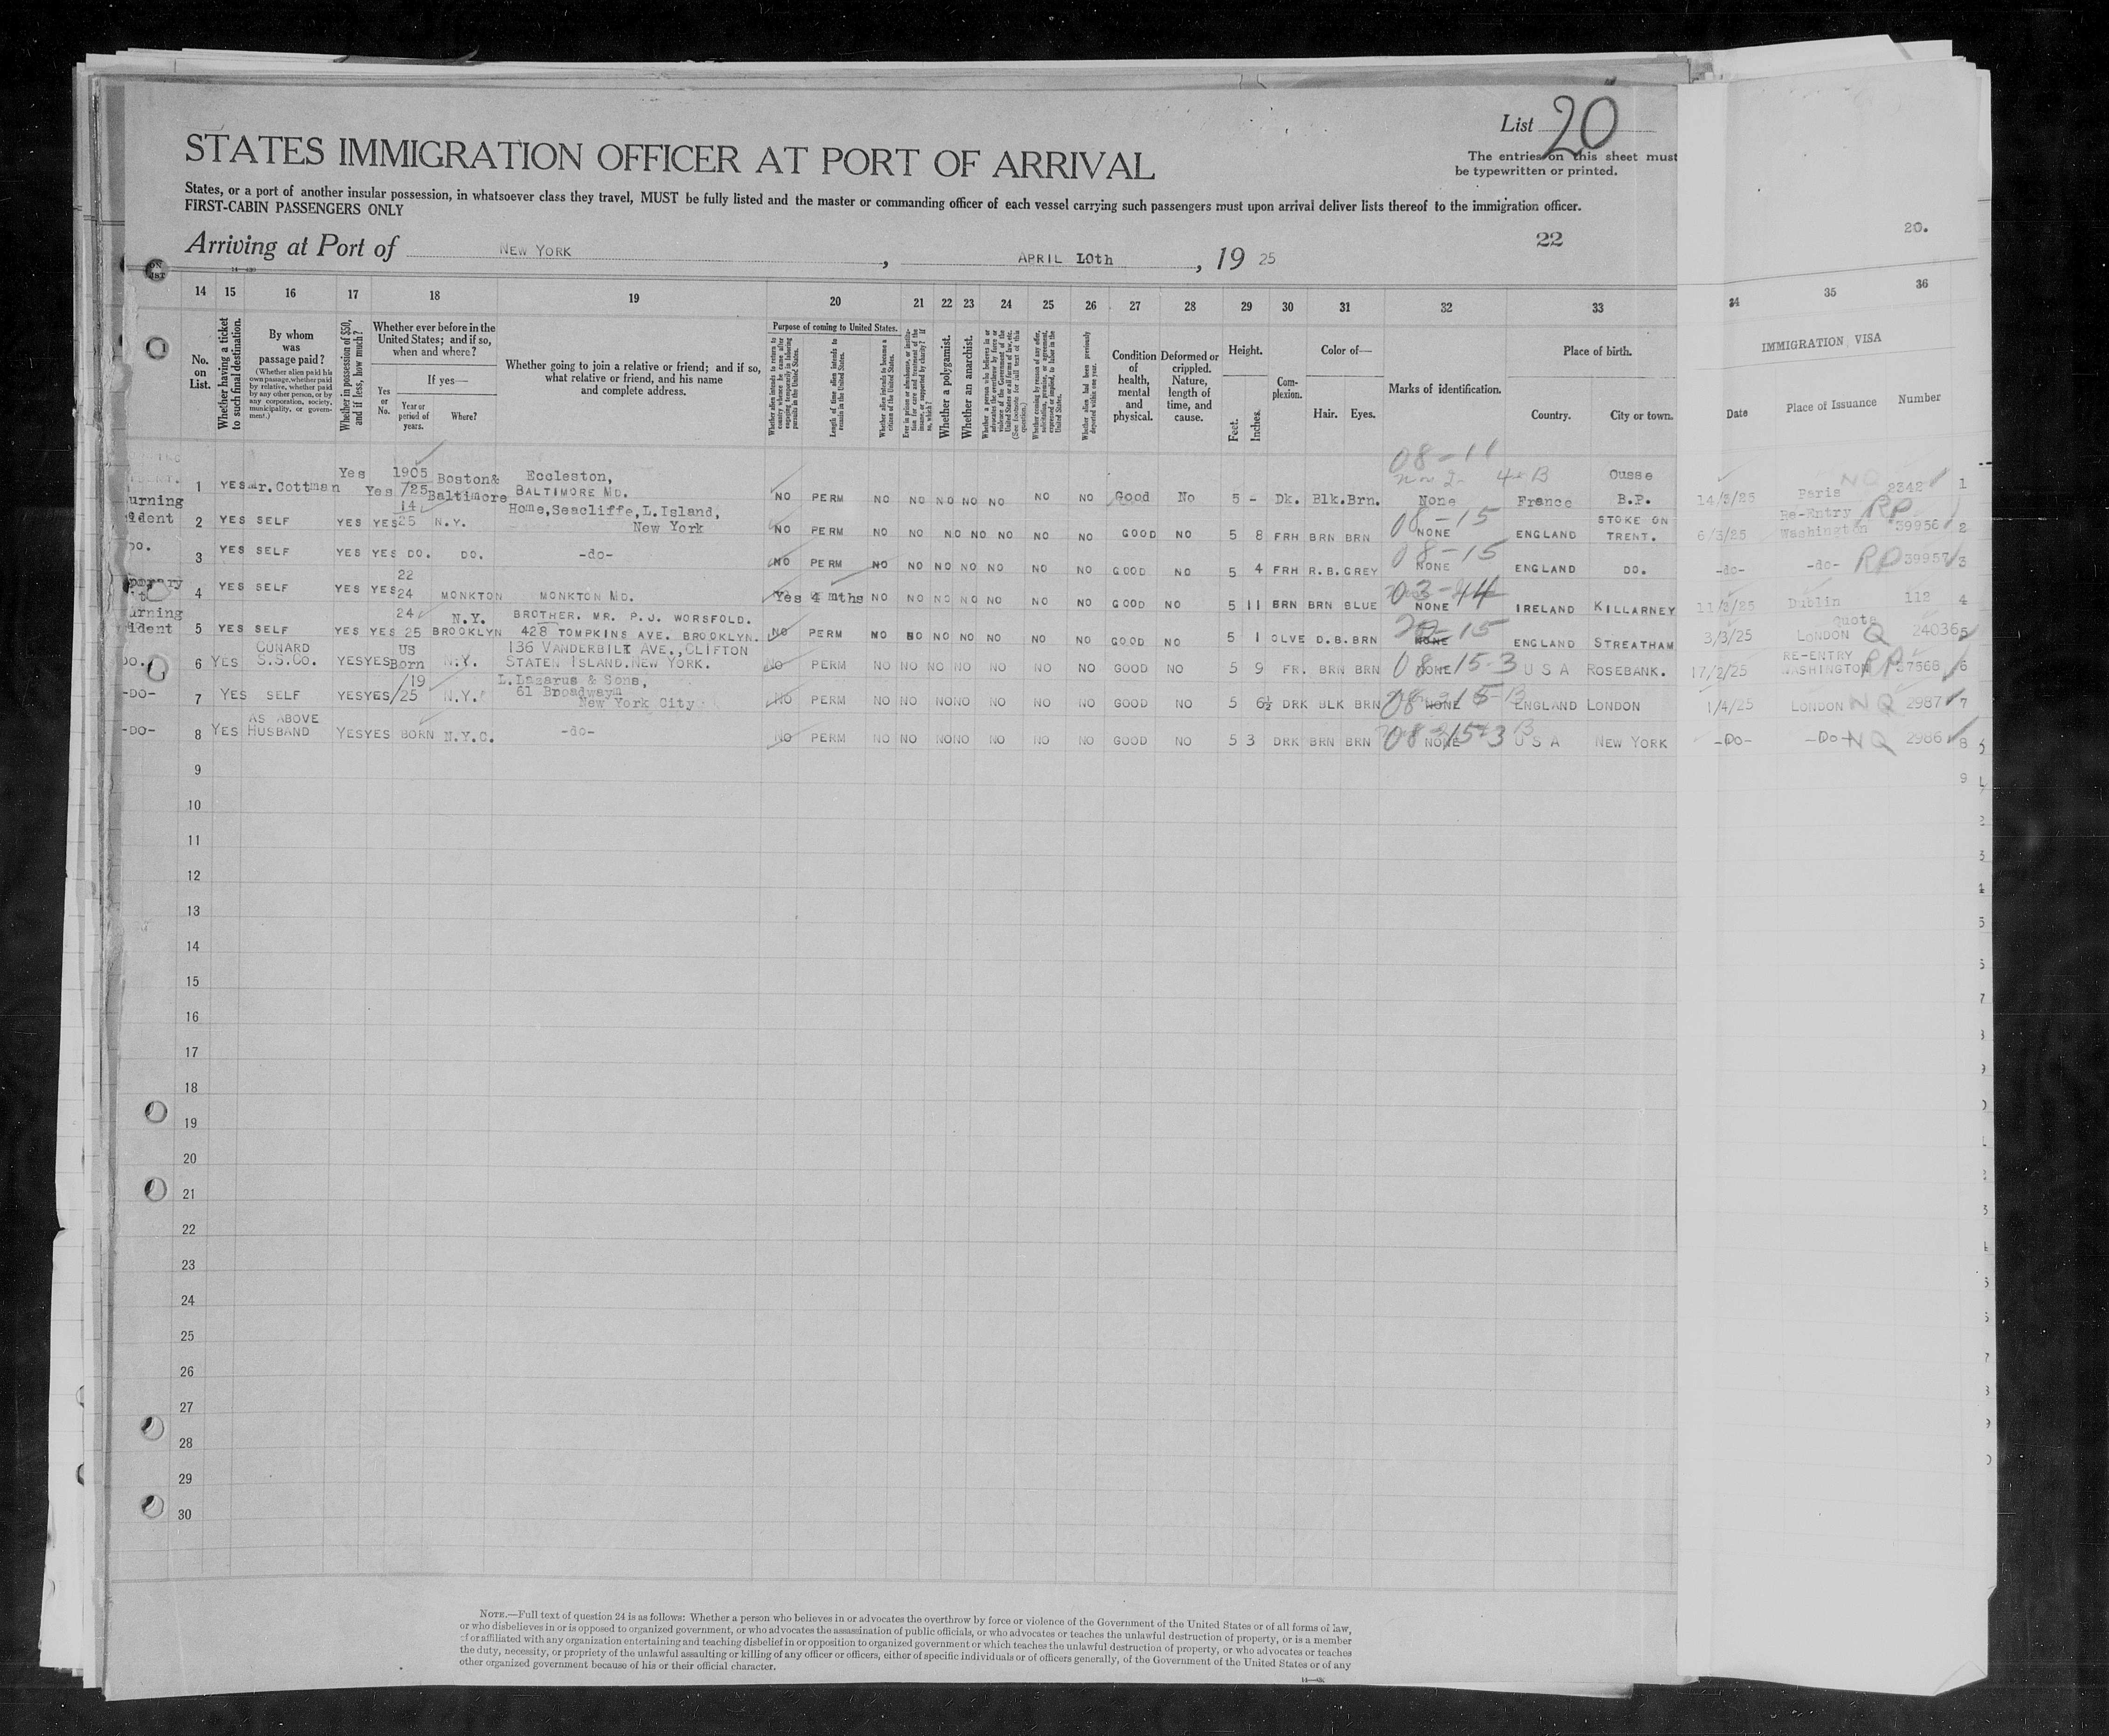 List 20
STATES IMMIGRATION OFFICER AT PORT OF ARRIVAL
The entries on this sheet must
be typewritten or printed.
States, or a port of another insular possession, in whatsoever class they travel, MUST be fully listed and the master or commanding officer of each vessel carrying such passengers must upon arrival deliver lists thereof to the immigration officer.
FIRST-CABIN PASSENGERS ONLY
20.
Arriving at Port of NEW YORK , APRIL 10th , 19 25
22
14 15 16 17 18 19 20 21 22 23 24 25 26 27 28 29 30 31 32 33 34 35 36
No. on List.
Whether having a ticket to such final destination.
By whom was passage paid?
(Whether alien paid his own passage, whether paid by relative, whether paid by any other person, or by any corporation, society, municipality, or government.)
Whether in possession of $50, and if less, how much?
Whether ever before in the United States; and if so, when and where?
Yes or No.
If yes—
Year or period of years.
Where?
Whether going to join a relative or friend; and if so, what relative or friend, and his name and complete address.
Purpose of coming to United States.
Whether alien intends to return to country whence he came after engaging temporarily in laboring pursuits in the United States.
Length of time alien intends to remain in the United States.
Whether alien intends to become a citizen of the United States.
Ever in prison or almshouse, or institution for care and treatment of the insane, or supported by charity? If so, which?
Whether a polygamist.
Whether an anarchist.
Whether coming by reason of any offer, solicitation, promise, or agreement, expressed or implied, to labor in the United States.
Whether alien had been previously deported within one year.
Condition of health, mental and physical.
Deformed or crippled. Nature, length of time, and cause.
Height.
Feet. Inches.
Complexion.
Color of—
Hair. Eyes.
Marks of identification.
Place of birth.
Country. City or town.
IMMIGRATION VISA
Date Place of Issuance Number
1 YES Mr. Cottman Yes Yes 1905 /25 Boston& Baltimore Eccleston, BALTIMORE MD. NO PERM NO NO NO NO NO NO NO Good No 5 - Dk. Blk. Brn. 08-11 None France Ousse B.P. 14/3/25 Paris NQ 2342 1
urning ident 2 YES SELF YES YES 14 25 N.Y. Home, Seacliffe, L. Island, New York NO PERM NO NO NO NO NO NO NO GOOD NO 5 8 FRH BRN BRN 08-15 NONE ENGLAND STOKE ON TRENT. 6/3/25 Re-Entry Washington RP 39956 2
DO. 3 YES SELF YES YES DO. DO. -do- NO PERM NO NO NO NO NO NO NO GOOD NO 5 4 FRH R.B. GREY 08-15 NONE ENGLAND DO. -do- -do- RP 39957 3
4 YES SELF YES YES 22 24 MONKTON MONKTON MD. Yes 4 mths NO NO NO NO NO NO NO GOOD NO 5 11 BRN BRN BLUE 03-44 NONE IRELAND KILLARNEY 11/3/25 Dublin 112 4
urning ident 5 YES SELF YES YES 24 25 N.Y. BROOKLYN BROTHER. MR. P.J. WORSFOLD. 428 TOMPKINS AVE. BROOKLYN. NO PERM NO NO NO NO NO NO NO GOOD NO 5 1 OLVE D.B. BRN NONE ENGLAND STREATHAM 3/3/25 Quota LONDON Q 24036 5
DO. 6 YES CUNARD S.S.CO. YES YES US Born N.Y. 136 VANDERBILT AVE., CLIFTON STATEN ISLAND. NEW YORK. NO PERM NO NO NO NO NO NO NO GOOD NO 5 9 FR. BRN BRN 08 NONE 15-3 U S A ROSEBANK. 17/2/25 RE-ENTRY WASHINGTON RP 37568 6
-DO- 7 YES SELF YES YES /19 /25 N.Y. L. Lazarus & Sons, 61 Broadway New York City NO PERM NO NO NO NO NO NO NO GOOD NO 5 6½ DRK BLK BRN NONE ENGLAND LONDON 1/4/25 LONDON NQ 2987 7
-DO- 8 YES AS ABOVE HUSBAND YES YES BORN N.Y.C. -do- NO PERM NO NO NO NO NO NO NO GOOD NO 5 3 DRK BRN BRN NONE U S A NEW YORK -DO- -DO- NQ 2986 8
9 9
10
11
12
13
14
15
16
17
18
19
20
21
22
23
24
25
26
27
28
29
30
NOTE.—Full text of question 24 is as follows: Whether a person who believes in or advocates the overthrow by force or violence of the Government of the United States or of all forms of law,
or who disbelieves in or is opposed to organized government, or who advocates the assassination of public officials, or who advocates or teaches the unlawful destruction of property, or is a member
of or affiliated with any organization entertaining and teaching disbelief in or opposition to organized government or which teaches the unlawful destruction of property, or who advocates or teaches
the duty, necessity, or propriety of the unlawful assaulting or killing of any officer or officers, either of specific individuals or of officers generally, of the Government of the United States or of any
other organized government because of his or their official character.